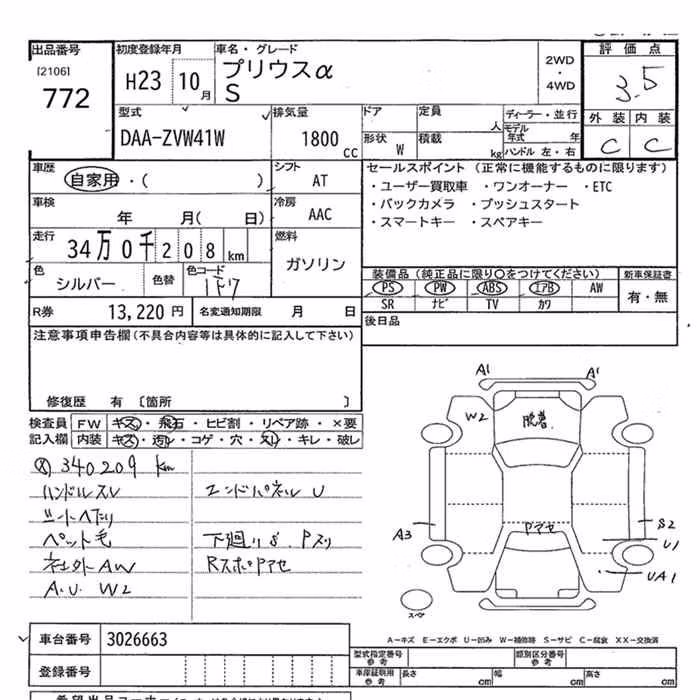 出品番号 初度登録年月 車名・グレード 評価点
[2106] プリウスα 2WD
772 H23 10月 S ・ 4WD 3.5
型式 排気量 ドア 定員 人 ディーラー・並行 外装 内装
DAA-ZVW41W 1800 CC 形状 W 積載 kg モデル年式 年 C C
ハンドル 左・右
車歴 自家用・( ) シフト AT セールスポイント (正常に機能するものに限ります)
・ユーザー買取車 ・ワンオーナー ・ETC
車検 年 月( 日) 冷房 AAC ・バックカメラ ・プッシュスタート
・スマートキー ・スペアキー
走行 34万0千208km 燃料 ガソリン
色 シルバー 色替 色コード 1F7 装備品(純正品に限り○をつけてください) 新車保証書
PS PW ABS エアB AW 有・無
R券 13,220円 名変通知期限 月 日 SR ナビ TV カワ
注意事項申告欄(不具合内容等は具体的に記入して下さい) 後日品
修復歴 有 〔箇所 〕
検査員 FW キズ・飛石・ヒビ割・リペア跡・×要
記入欄 内装 キズ・汚レ・コゲ・穴・スレ・キレ・破レ
340209 km
ハンドルスレ エンドパネル U
シートヘたり
ペット毛 下廻りS. Pスリ
社外AW RスポPアセ
A.U. W2
A1 A1
W2 脱着
A3 Pアセ S2
U1
UA1
スペア
A-キズ E-エクボ U-凹み W-補修跡 S-サビ C-腐食 XX-交換済
車台番号 3026663 型式指定番号 参考 類別区分番号 参考
登録番号 車庫証明用 参考 長さ cm 幅 cm 高さ cm